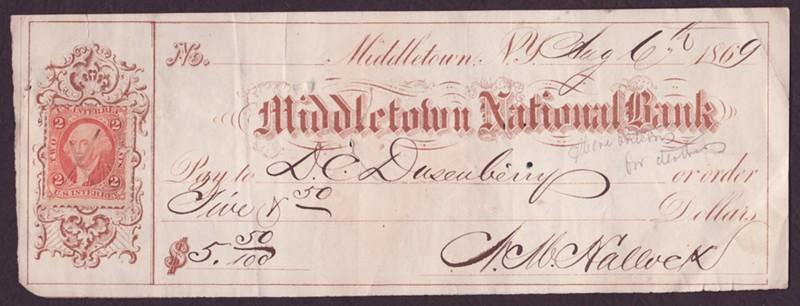 No. Middletown, N.Y. Aug 6th 1869
Middletown National Bank
for
Pay to D. C. Dusenberry or order
Five & 50 Dollars
$5. 50/100 N. M. Hallock
U.S. INTER. REV.
2 2
TWO
2 2